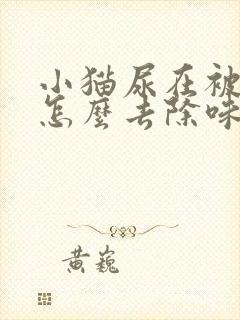 小猫尿在被
怎麼去除味
黄巍